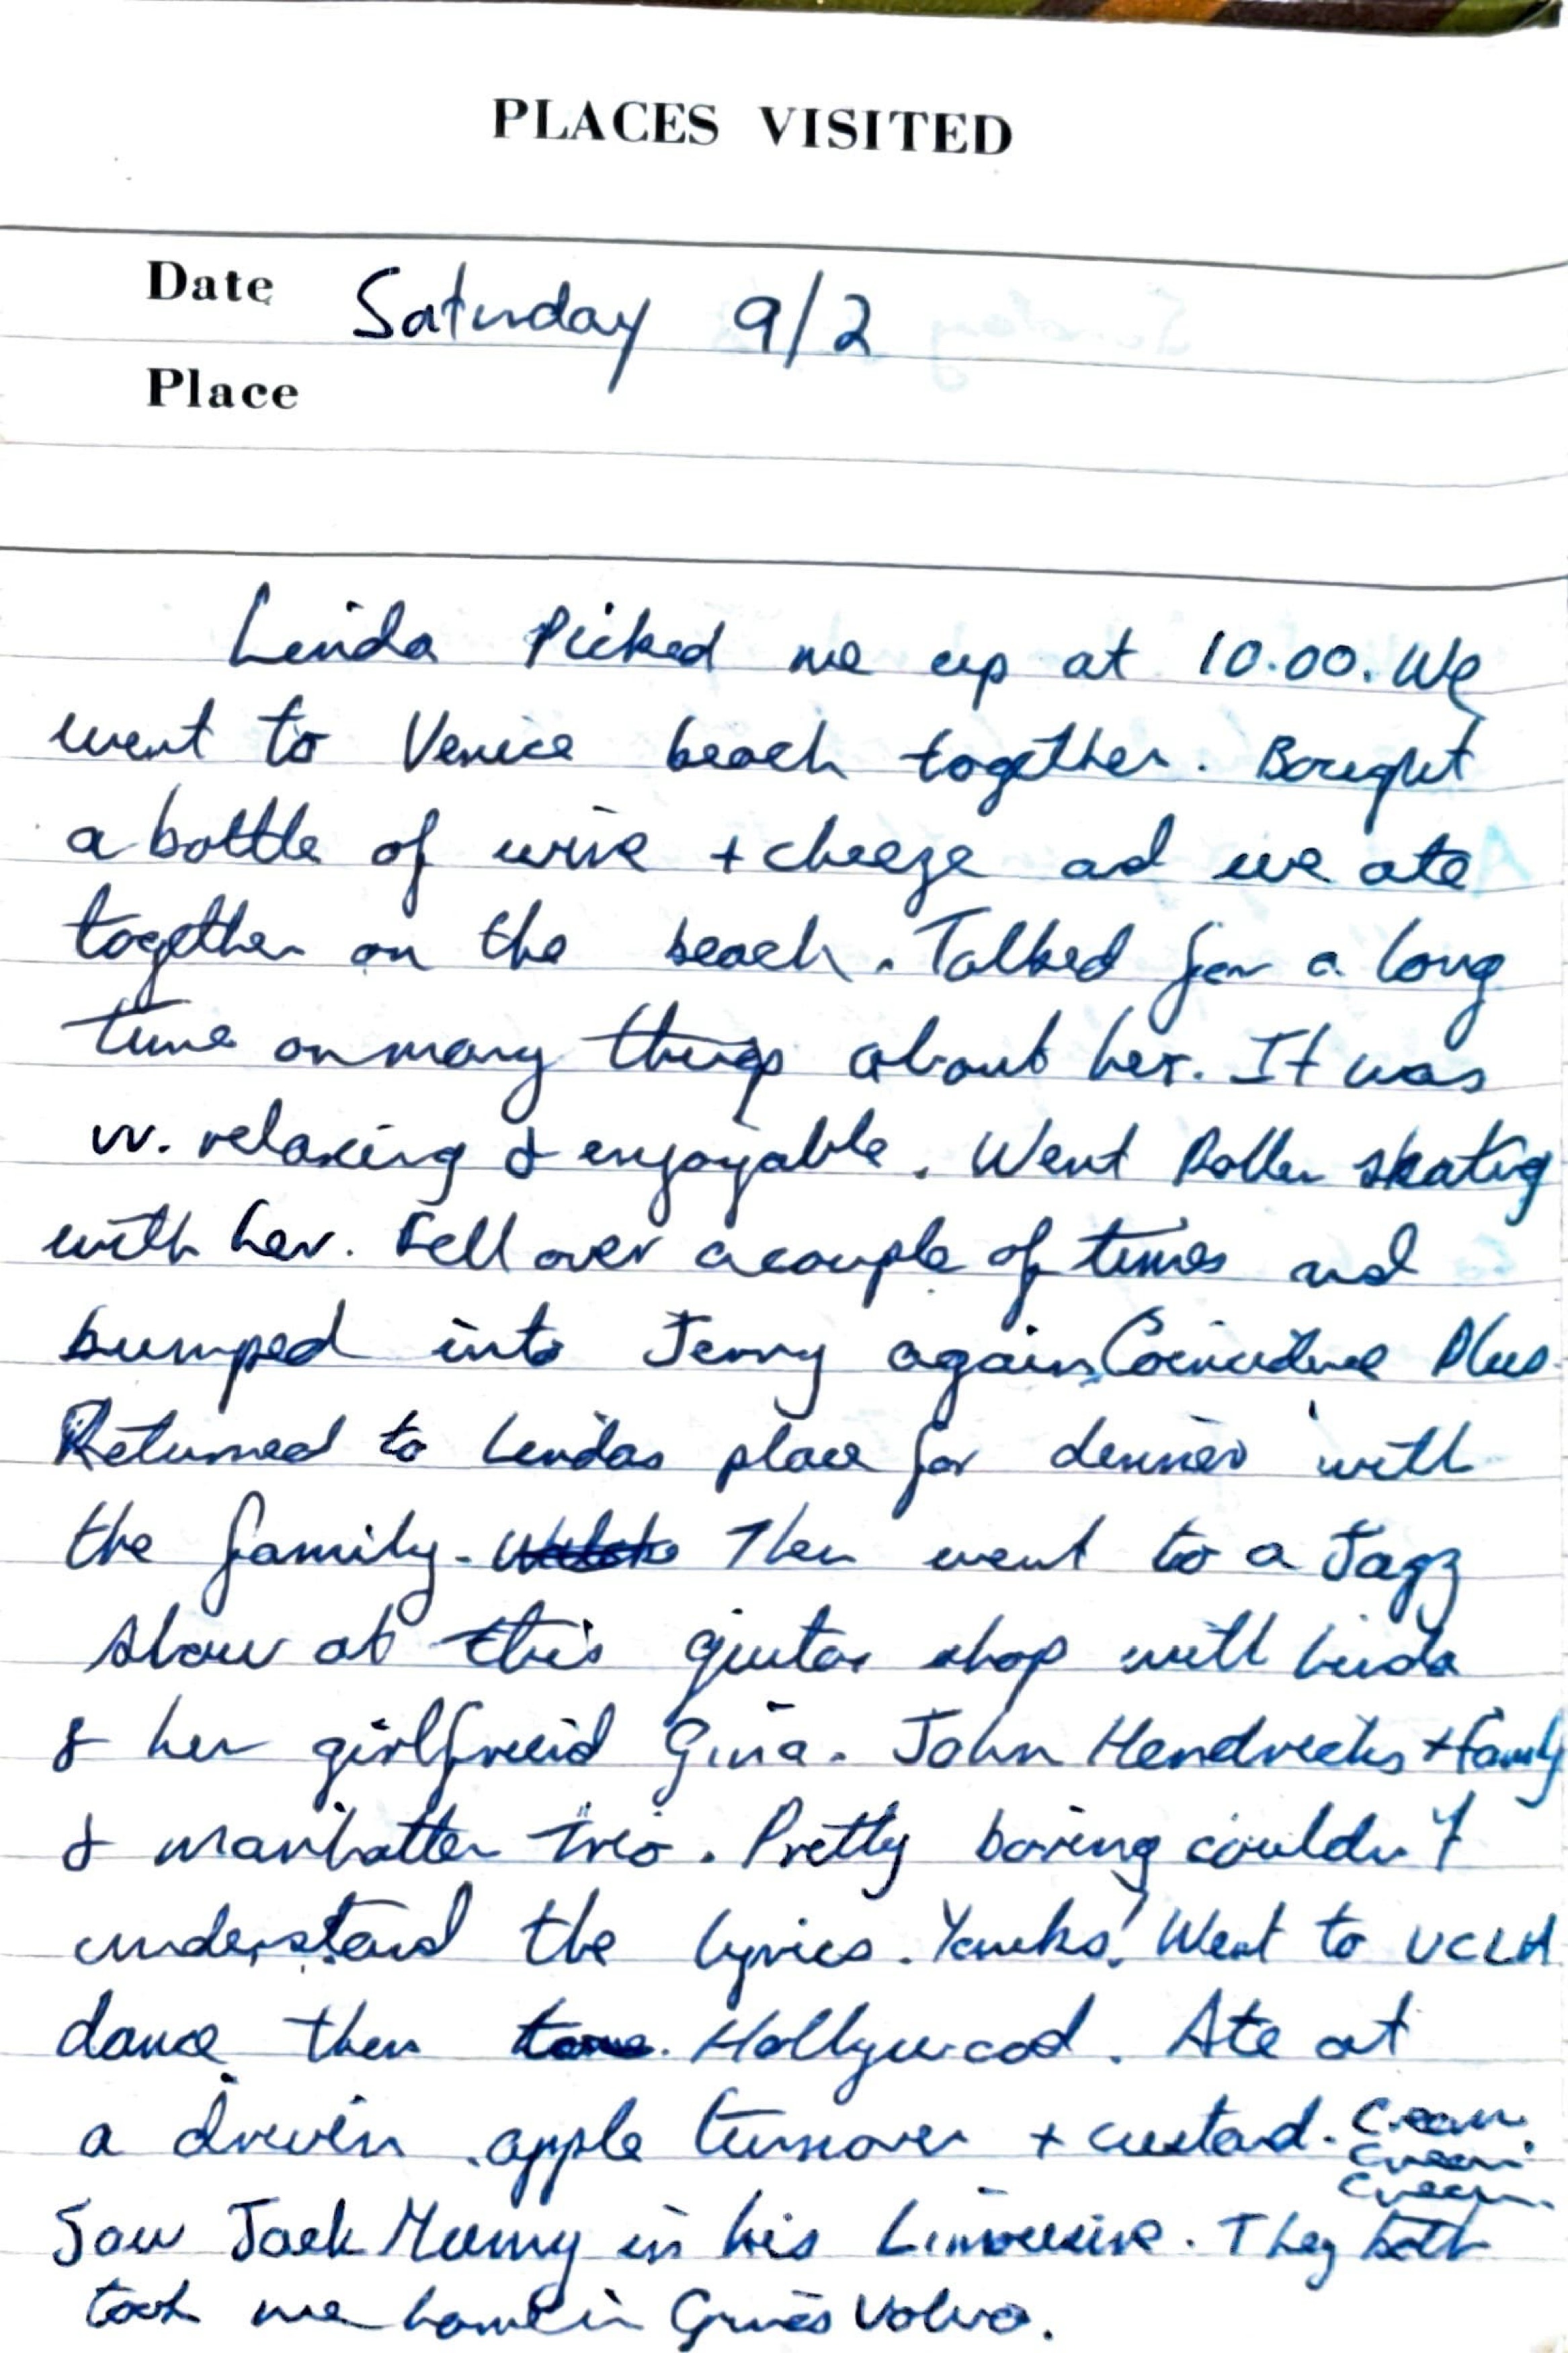 PLACES VISITED
Date Saturday 9/2
Place
Linda Picked me up at 10.00. We
went to Venice beach together. Bought
a bottle of wine + cheeze ad we ate
together on the beach. Talked for a long
time on many things about her. It was
vv. relaxing & enjoyable. Went Roller skating
with her. Fell over a couple of times and
bumped into Jerry again. Coincidence Plus.
Returned to Lindas place for dinner with
the family. Then went to a Jazz
show at this guitar shop with Linda
& her girlfreind Gina. John Hendricks + family
& manhatten trio. Pretty boring couldn't
understand the lyrics. Yanks! Went to UCLA
dance then Hollywood. Ate at
a drivein. apple turnover + custard. Cream
Cream
Cream
Saw Jack Mumy in his Limousine. They both
took me home in Ginas Volvo.